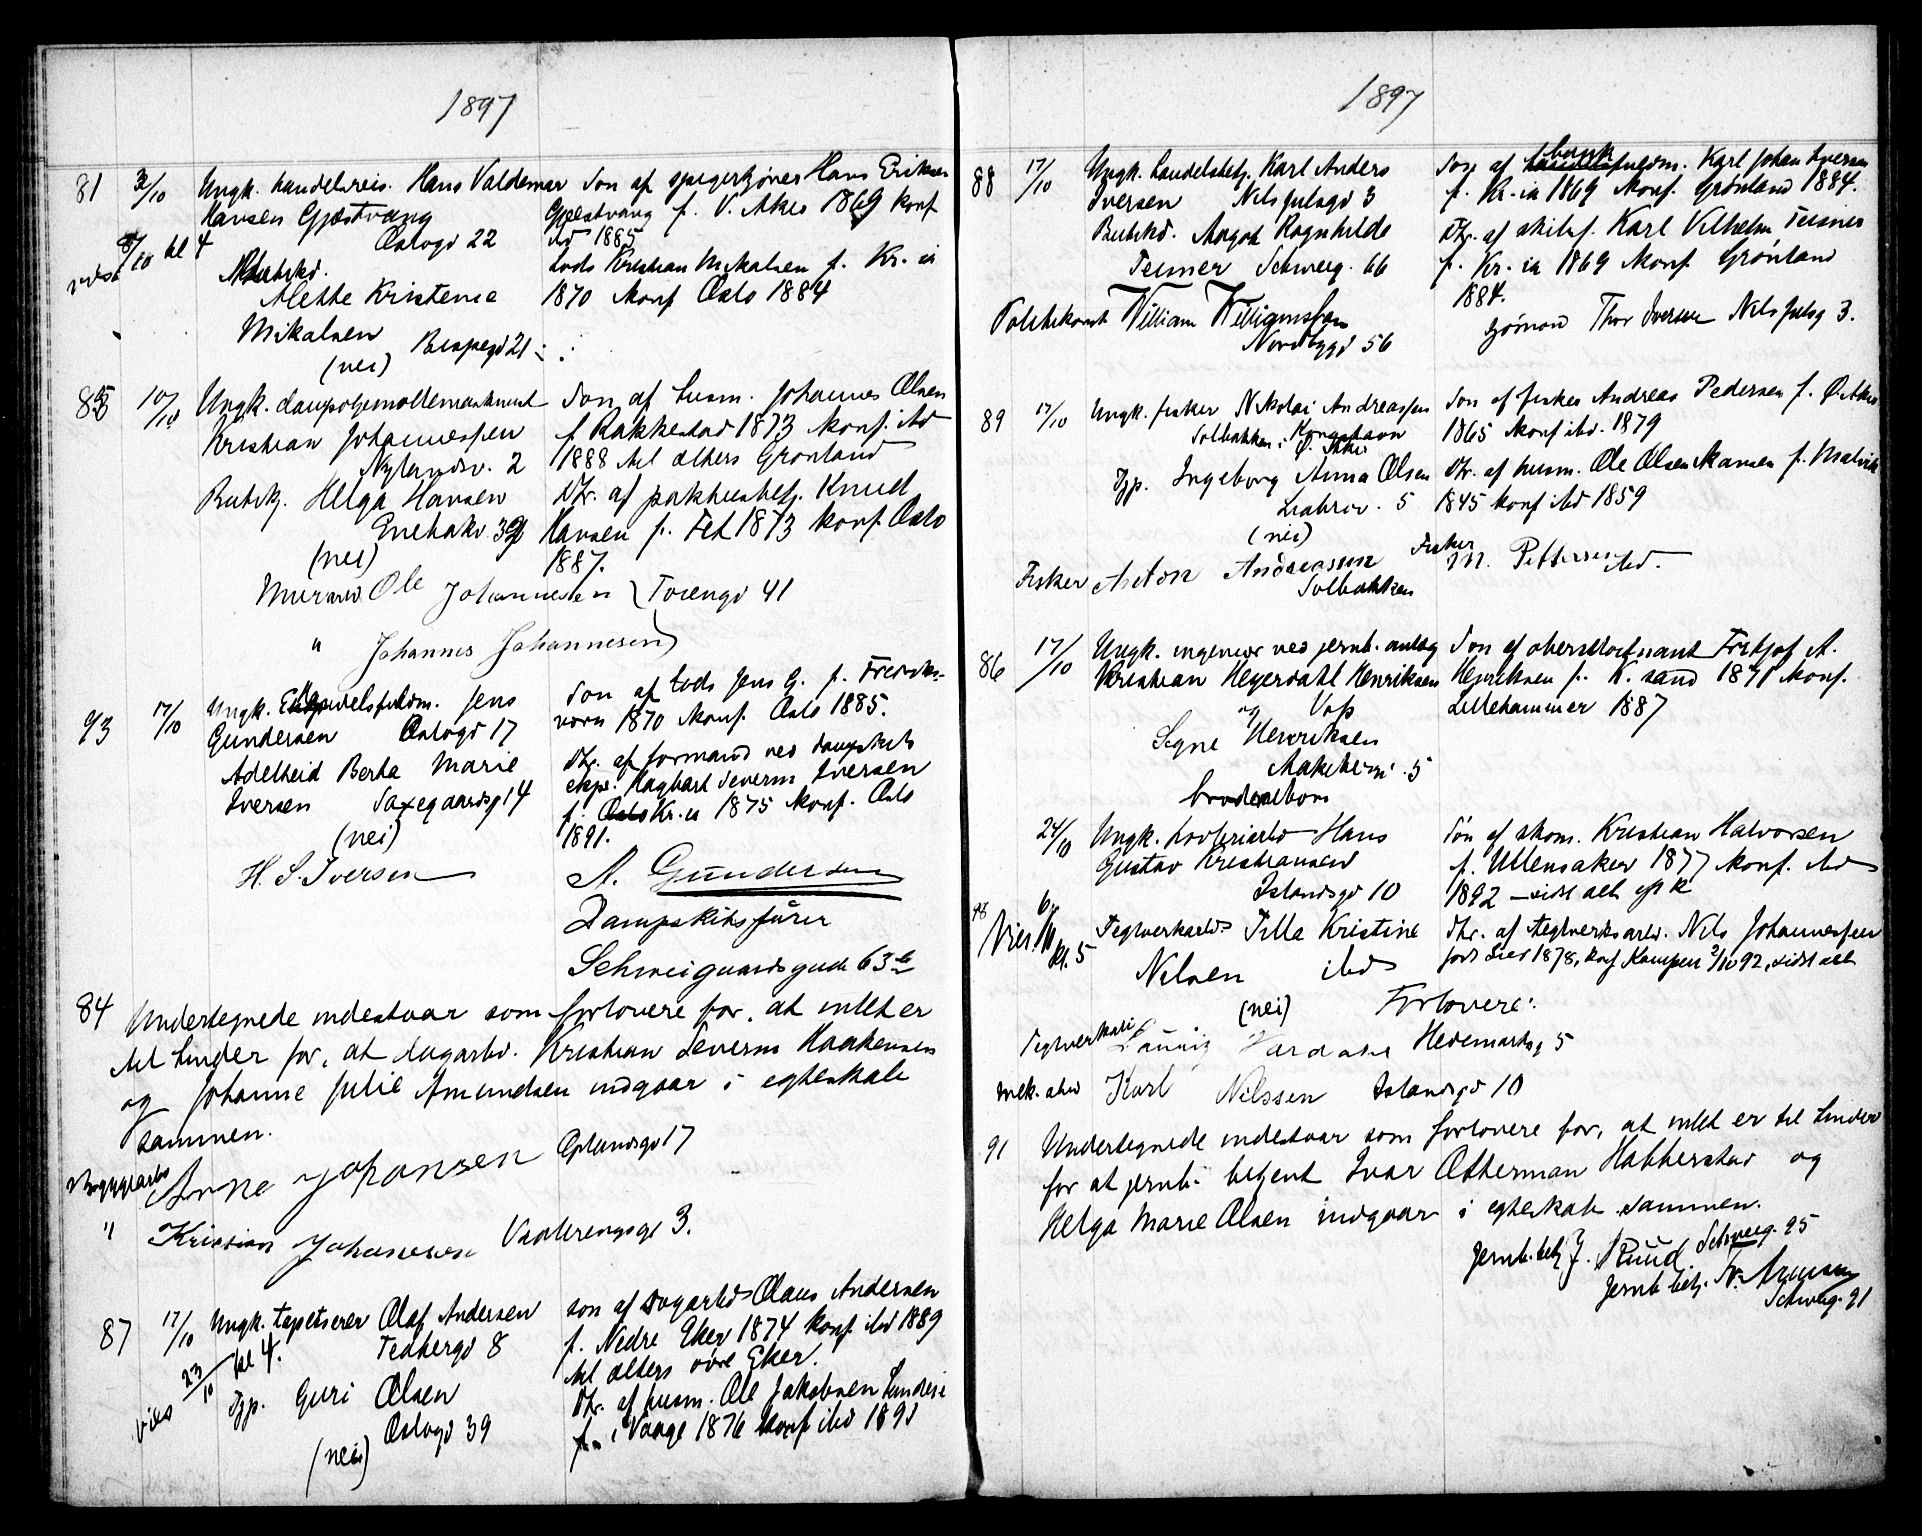 1897
81 3/10 Ungk. handelsreis. Hans Valdemar Søn af spigerkjører Hans Eriksen
Hansen Gjæstvang Gjæstvang f. V. Aker 1869 konf
Oslogd 22 ibd 1885
8/10 kl 4
Alette Kristense Lods Kristian Mikalsen f. Kr.ia
Mikalsen 1870 konf Oslo 1884
Bispegd 21
(nei)
10/10 Ungk. Søn af husm. Johannes Olsen
Kristian Johannessen f Rakkestad 1873 konf. ibd
Nylandsv. 2 1888 til alters Grønland
Butikj. Helga Hansen Dtr. af pakhusbetj. Knud
Enebakv. Hansen f. Fet 1873 konf. Oslo
(nei) 1887.
Murarbd Ole Johannessen } Toiengd 41
" Johannes Johannesen
93 17/10 Ungk. Jens Søn af Lods Jens G. f. Fredriks-
Gundersen Oslogd 17 værn 1870 konf. Oslo 1885.
Adelheid Berta Marie Dtr. af formand ved dampskibs
Iversen Saxegaardsg 14 eksp. Hagbart Severin Iversen
(nei) f. Kr.ia 1875 konf. Oslo
1891.
H. S. Iversen A. Gundersen
Dampskibsfører
Schweigaardsgade 63 b
84 Undertegnede indestaar som forlovere for, at intet er
til hinder for, at dagarbd. Kristian Severin Haakensen
og Johanne Julie Amundsen indgaar i egteskab
sammen.
Bryggearb Arne Johansen Oplandsgd 17
" Kristian Johansen Vaalerengsgd 3.
87 17/10 Ungk. tapetserer Olaf Andersen Søn af dagarbd Olaus Andersen
viet 23/10 kl 4. Tedbergd 8 f. Nedre Eker 1874 konf. ibd 1889
til alters øvre Eker.
Tjp. Guri Olsen Dtr. af husm. Ole Jakobsen
Oslogd 39 f. i Vaage 1876 konf ibd 1891
(nei)
1897
88 17/10 Ungk. handelsbetj. Karl Anders Søn af Karl Johan Iversen
Iversen Nils Julsgd 3 f. Kr.ia 1869 konf. Grønland 1884.
Butikd. Aagot Ragnhilda Dtr. af skibsf. Karl Vilhelm Teisner
Teisner Schweig. 66 f. Kr.ia 1869 konf Grønland
1884.
Politikonst William Williamsen Thor Iversen Nils Julsg 3.
Nordbygd 56
89 17/10 Ungk. fisker Nikolai Andreassen Søn af fisker Andreas Pedersen f. Ø. Aker
Solbakken, Kongshavn 1865 konf ibd. 1879
Ø. Aker
Tjp. Ingeborg Anna Olsen Dtr. af husm. Ole Olsen f. Malvik
Liabrov. 5 1845 konf ibd 1859
(nei)
Fisker Anton Andreassen Fisker M. Pettersen ibd.
Solbakken
86 17/10 Ungk. ingeniør ved jernb. anlæg Søn af oberstløitnant Fritjof A.
Kristian Heyerdahl Henriksen Henriksen f. K. sand 1871 konf.
og Voss Lillehammer 1887
Signe Henriksen
Akkebergv. 5
24/10 Ungk. Hans Søn af skom. Kristian Halvorsen
Gustav Kristiansen f. Ullensaker 1877 konf. ibd
Islandsgd 10 1892 – sidst alt.
Viet kl. 5 Teglverkarbd Tilla Kristine Dtr. af teglverksarbd. Nils Johannessen
Nilsen ibd født Lier 1878, konf Kampen 2/10 92, sidst alt
(nei) Forlovere:
Teglverkarb Hedemarksg 5
mek. arbd Karl Nilssen Islandsgd 10
91 Undertegnede indestaar som forlovere for, at intet er til hinder
for at jernb. betjent Ivar Otterman Habberstad og
Helga Marie Olsen indgaar i egteskab sammen.
Jernb. betj J. Ruud. Schweig. 95
Jernb. betj.
Schweig. 91